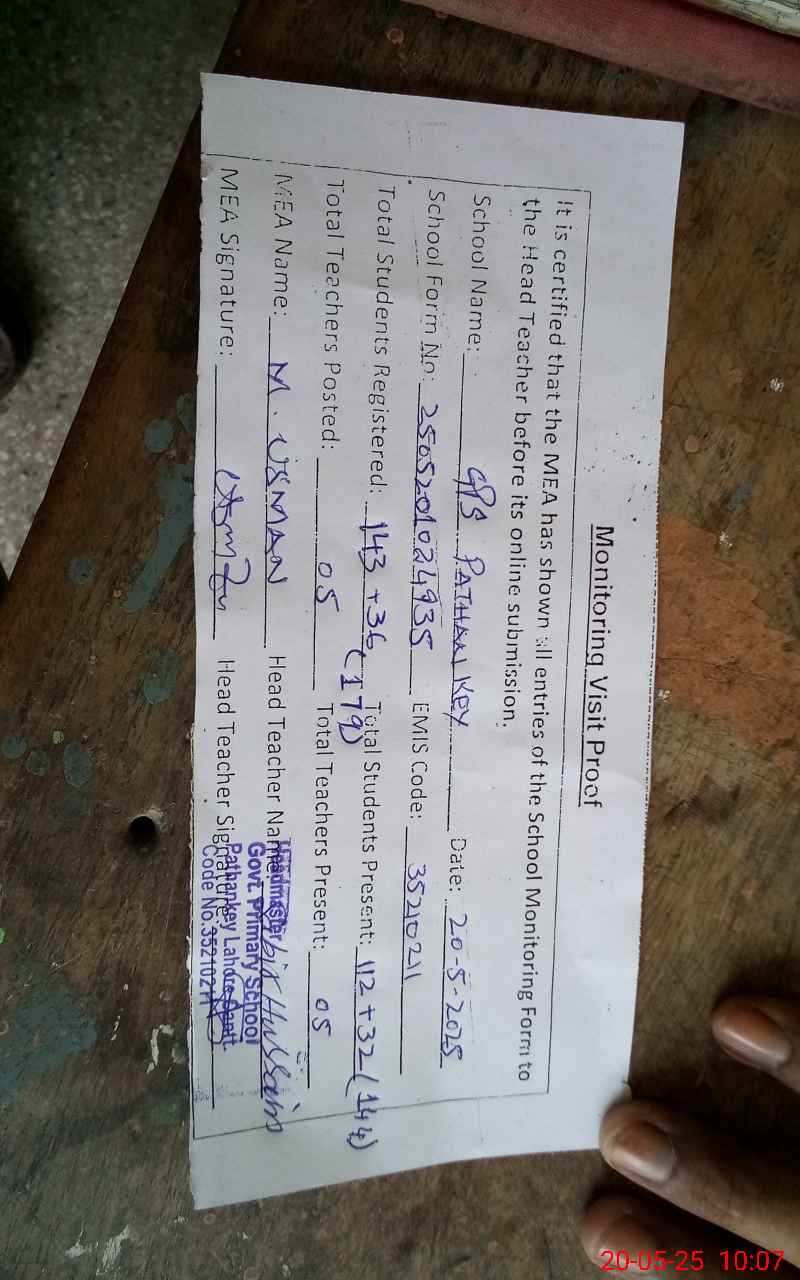 Monitoring Visit Proof
It is certified that the MEA has shown all entries of the School Monitoring Form to
the Head Teacher before its online submission.
School Name: GPS PATHAN KEY Date: 20-5-2025
School Form No: 2505201024935 EMIS Code: 35210211
Total Students Registered: 143 + 36 (179) Total Students Present: 112 + 32 (144)
Total Teachers Posted: 05 Total Teachers Present: 05
MEA Name: M. USMAN Head Teacher Name: Hussain
MEA Signature: Head Teacher Signature:
Headmaster
Govt. Primary School
Pathankey Lahore Cantt.
Code No.35210211
20-05-25 10:07